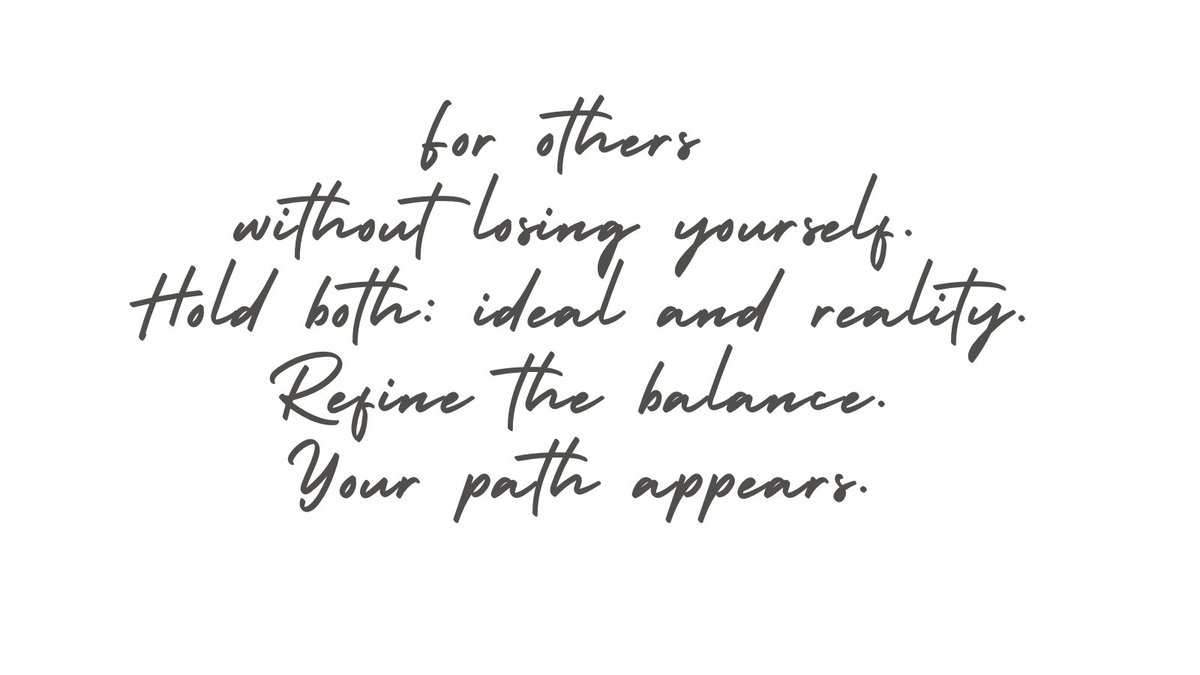 for others
without losing yourself.
Hold both: ideal and reality.
Refine the balance.
Your path appears.